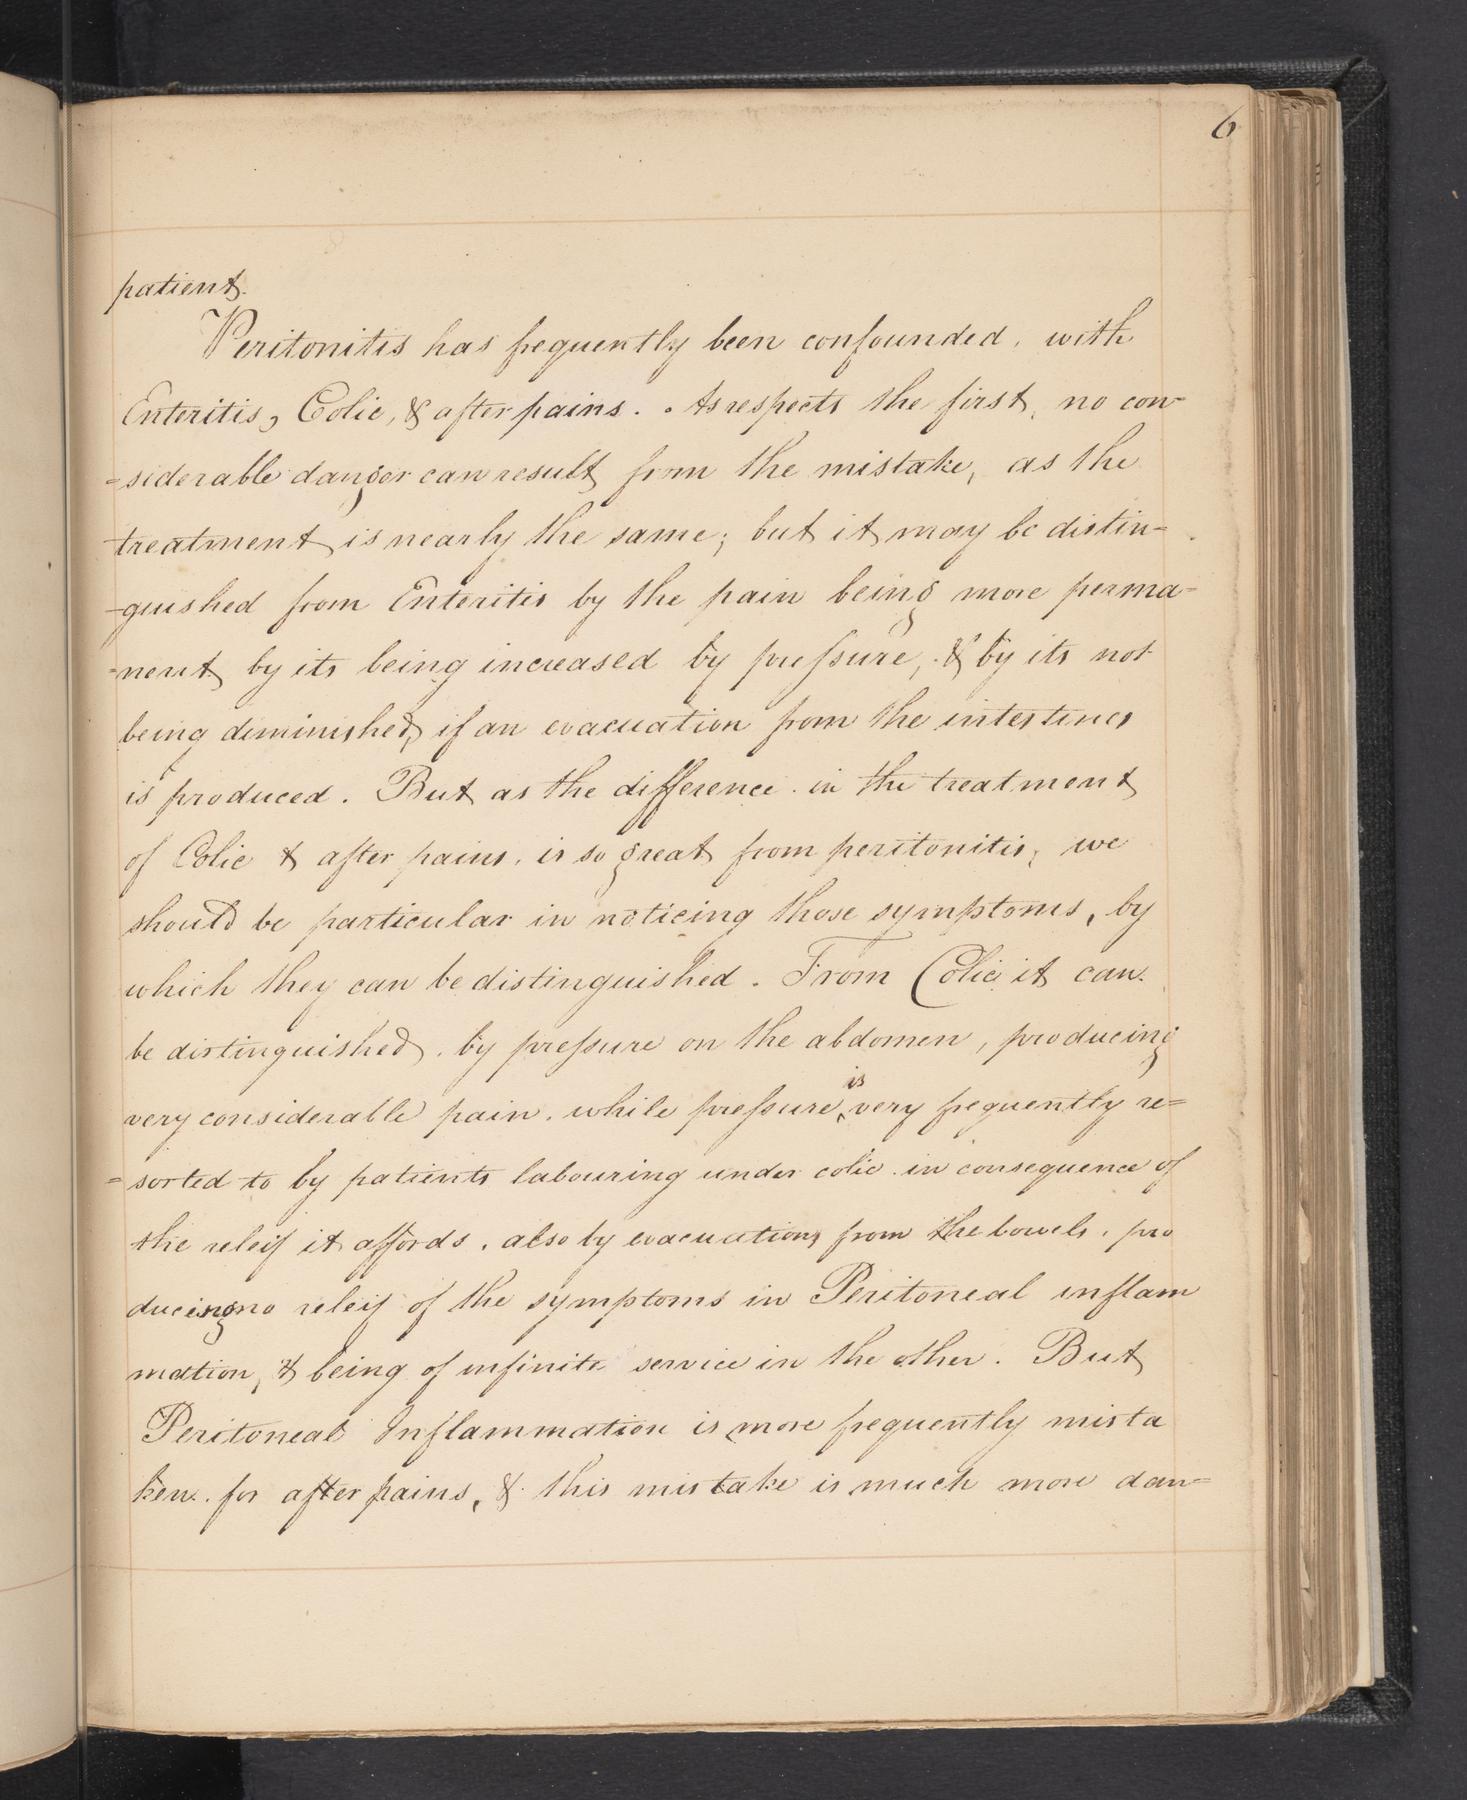 6
patient.
Peritonitis has frequently been confounded, with
Enteritis, Colic, & after pains. As respects the first, no con=
=siderable danger can result from the mistake, as the
treatment is nearly the same; but it may be distin=
-guished from Enteritis by the pain being more perma=
=nent by its being increased by pressure, & by its not
being diminished, if an evacuation from the intestines
is produced. But as the difference in the treatment
of Colic & after pains, is so great from peritonitis, we
should be particular in noticing those symptoms, by
which they can be distinguished. From Colic it can
be distinguished, by pressure on the abdomen, producing
very considerable pain, while pressure is very frequently re=
=sorted to by patients labouring under colic in consequence of
the releif it affords, also by evacuations from the bowels, pro
ducing no releif of the symptoms in Peritoneal inflam
mation, & being of infinite service in the other. But
Peritoneal Inflammation is more frequently mista
ken for after pains, & this mistake is much more dan=